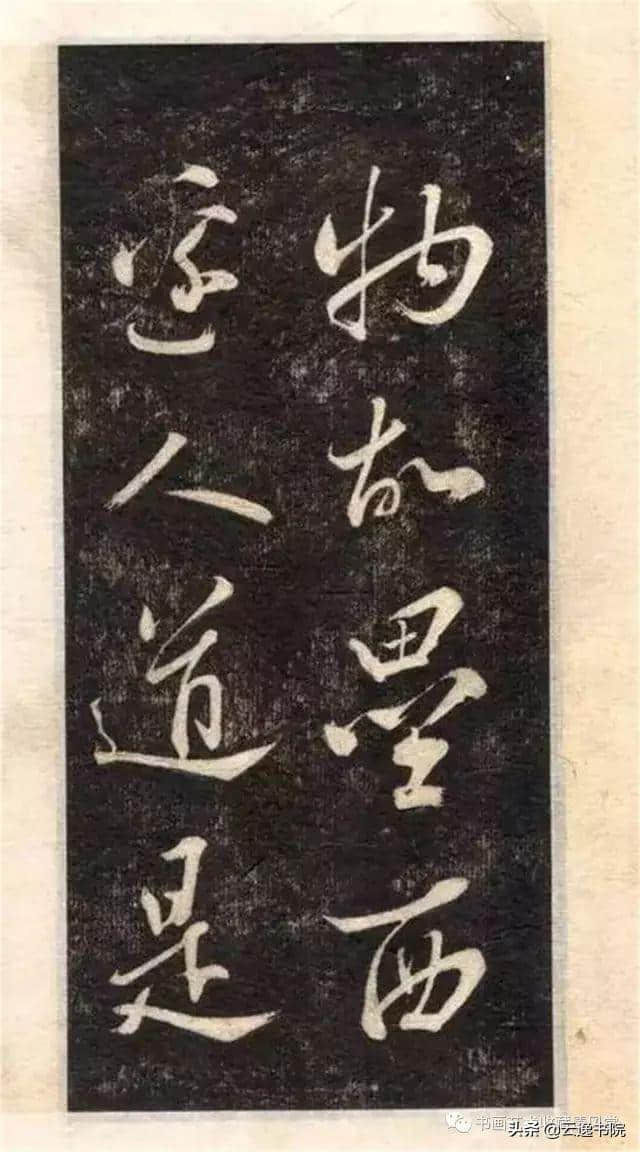 物故壘西
邊人道是
头条 @云逸书院